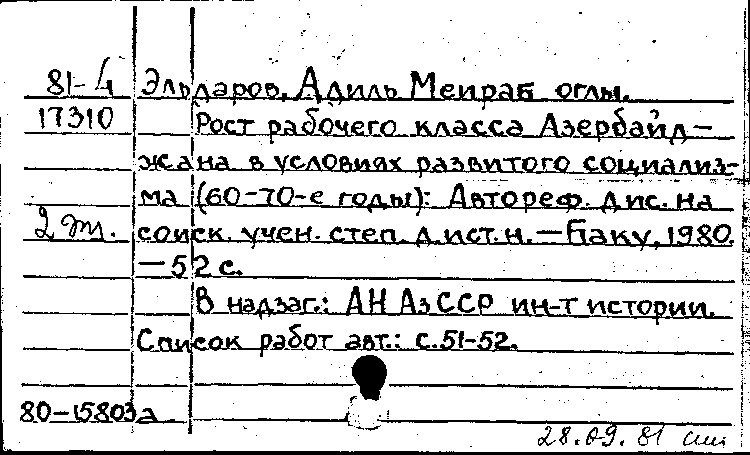 81-4 Эльдаров, Адиль Меираб оглы.
17310 Рост рабочего класса Азербайд-
жана в условиях развитого социализ-
ма (60-70-е годы): Автореф. дис. на
2 эт. соиск. учен. степ. д.ист.н. — Баку, 1980.
— 52 с.
В надзаг.: АН АзССР ин-т истории.
Список работ авт.: с.51-52.
80-15803а
28.09.81